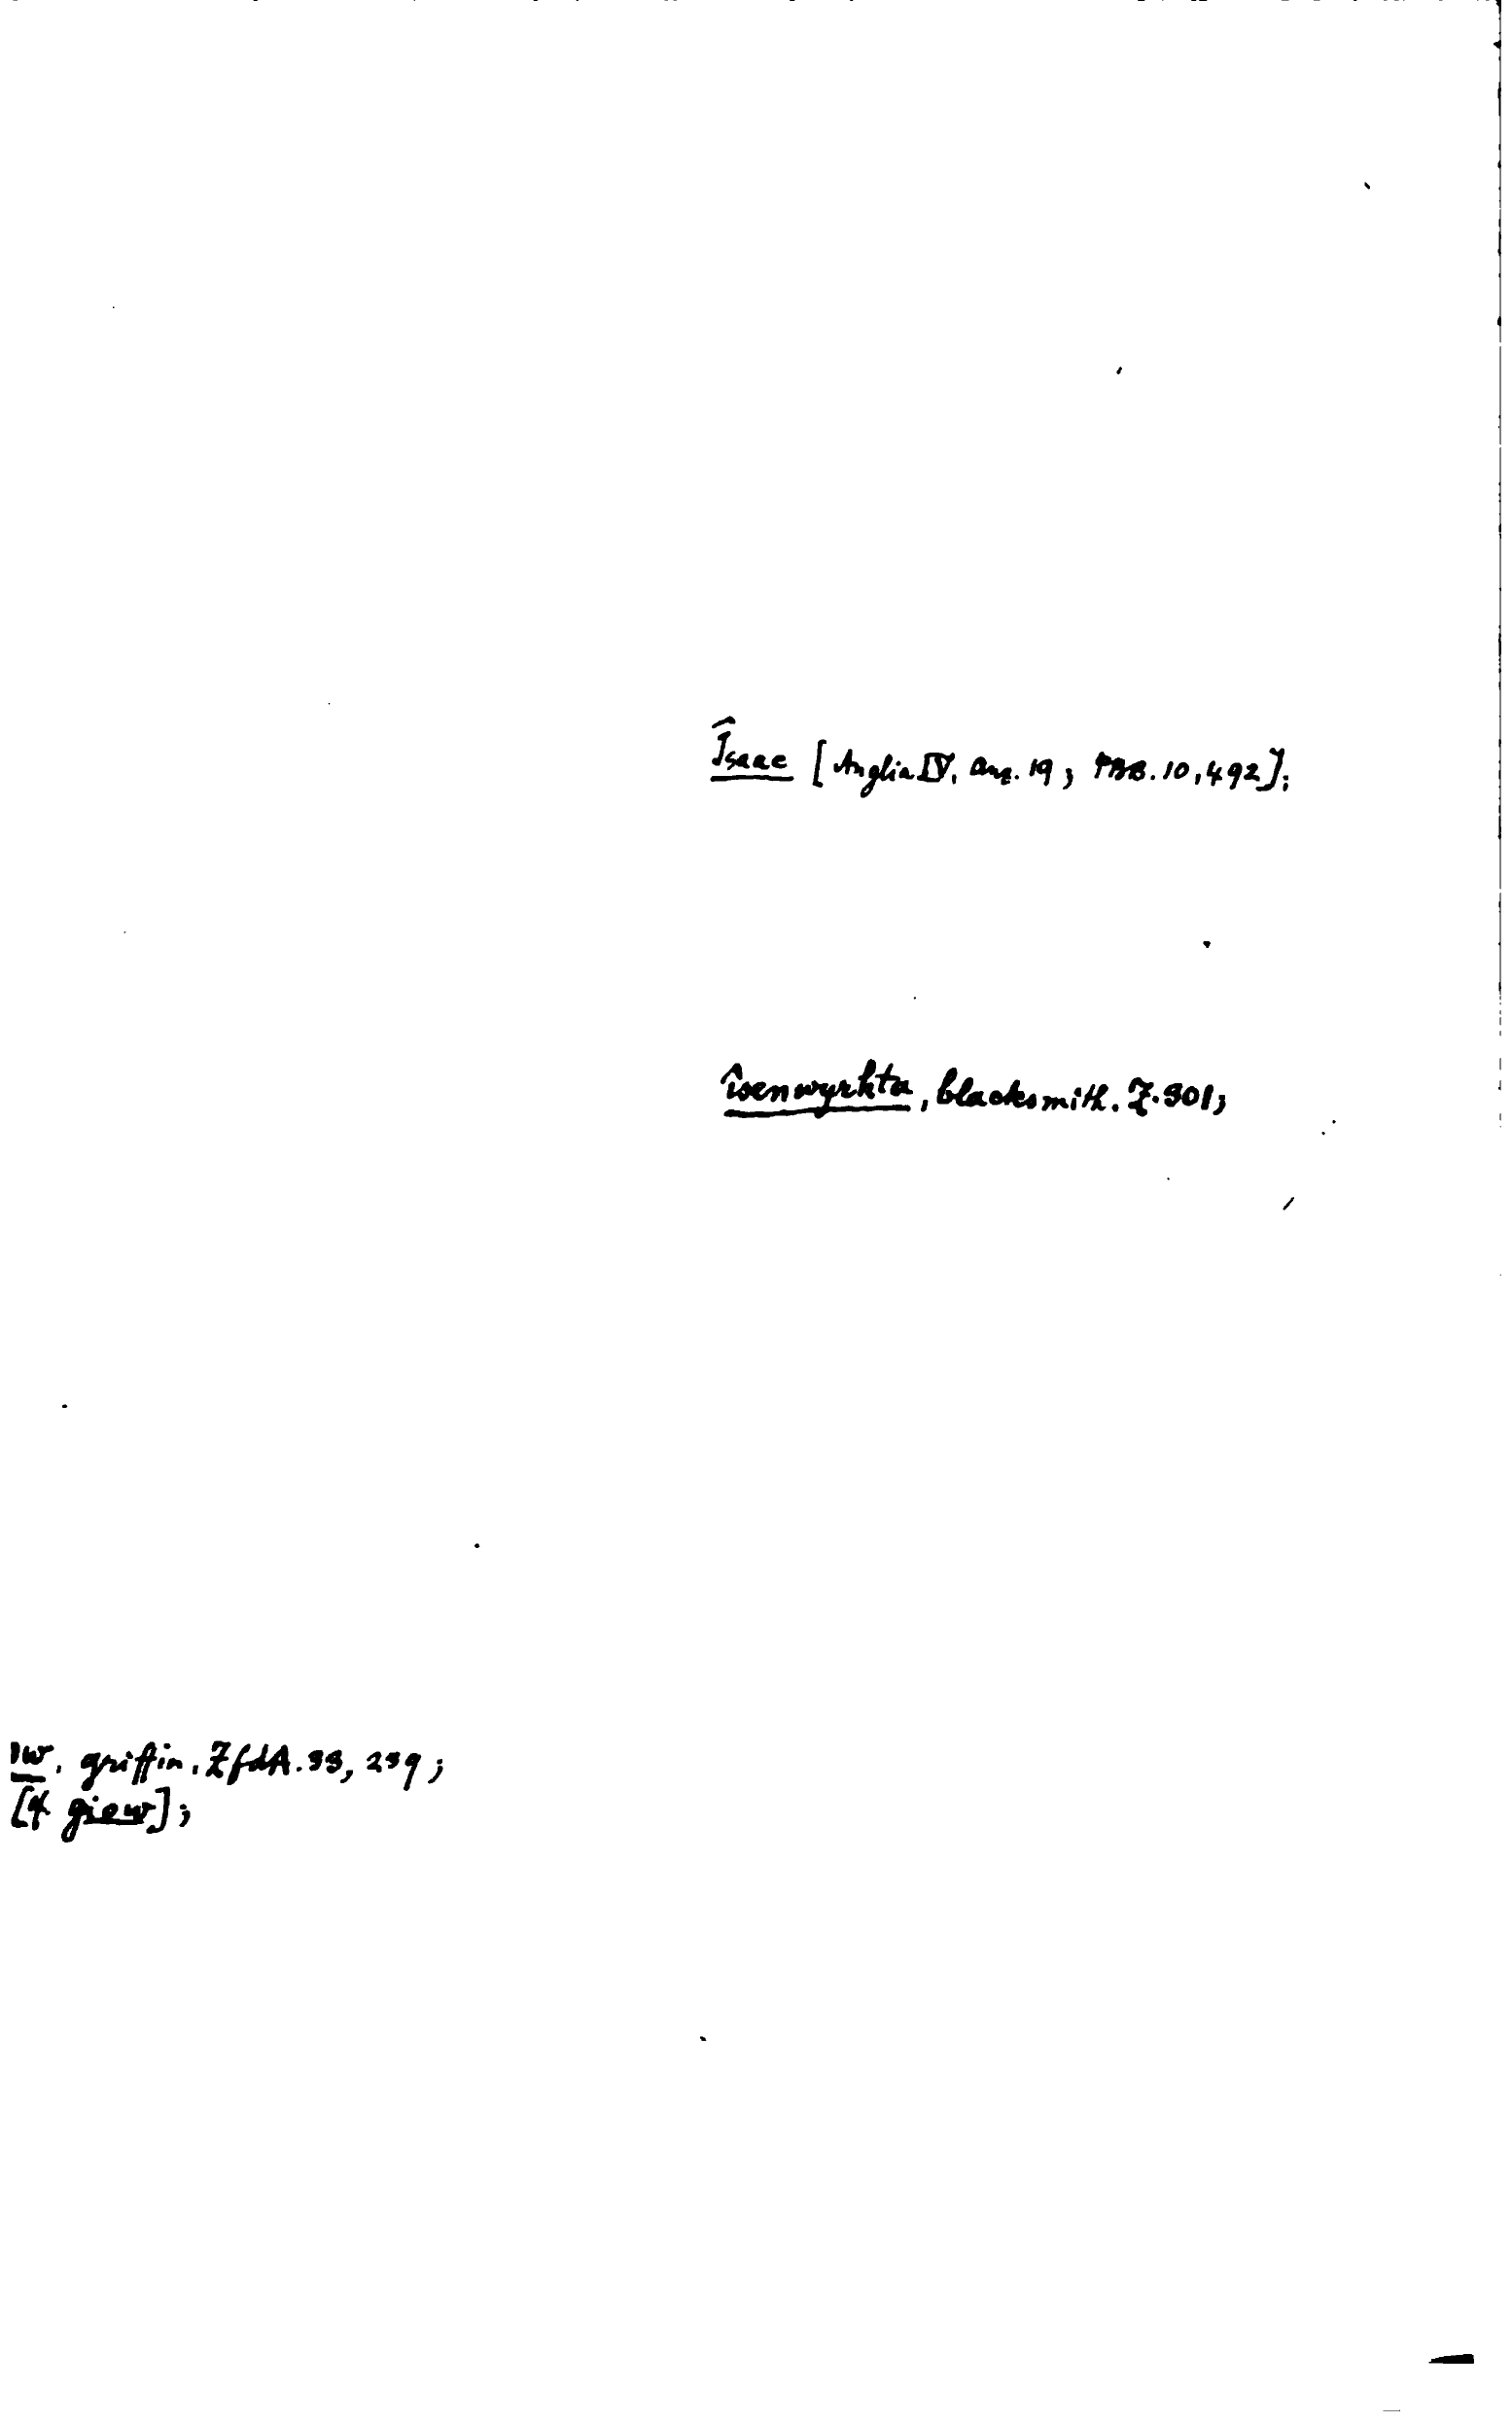 Îsaac [Anglia IV. Anz. 19; PBB. 10, 492];
îsenwyrhta, blacksmith. Z. 301;
iw. griffin. ZfdA. 33, 239;
[cf giow];